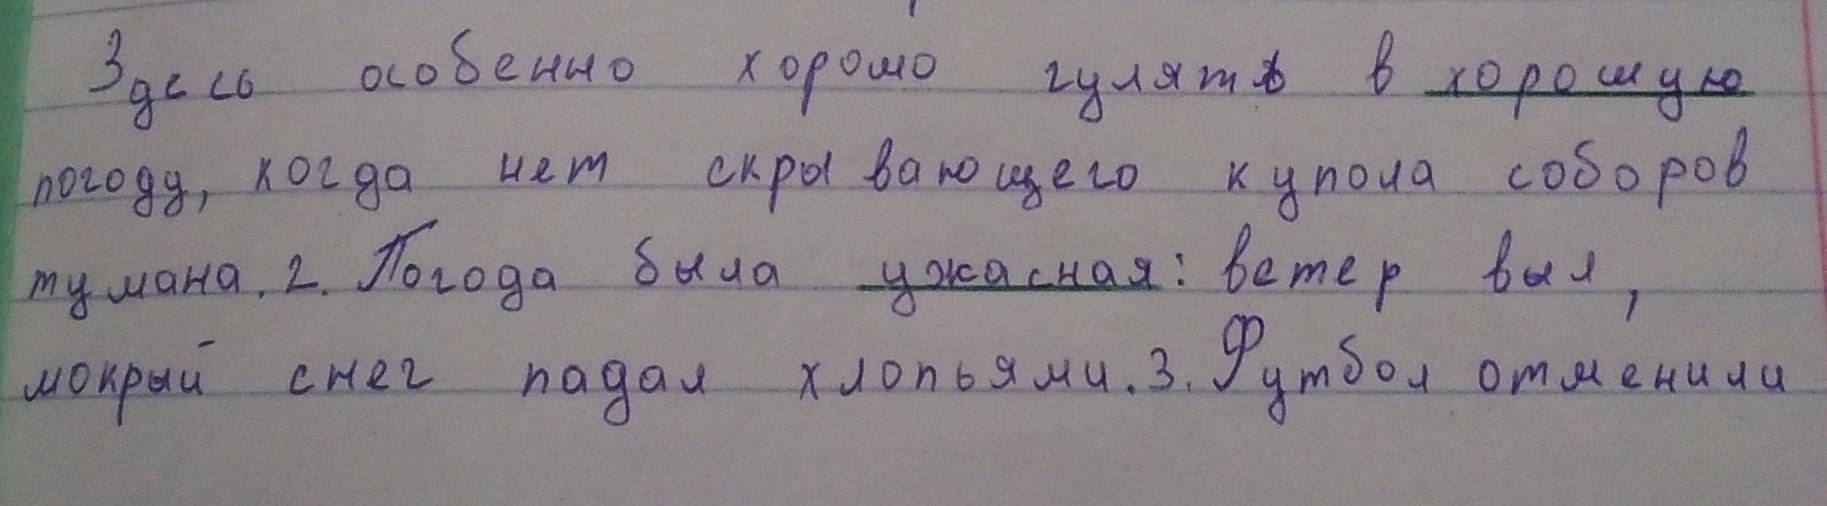 Здесь особенно хорошо гулять в хорошую
погоду, когда нет скрывающего купола соборов
тумана. 2. Погода была ужасная: ветер выл,
мокрый снег падал хлопьями. 3. Футбол отменили